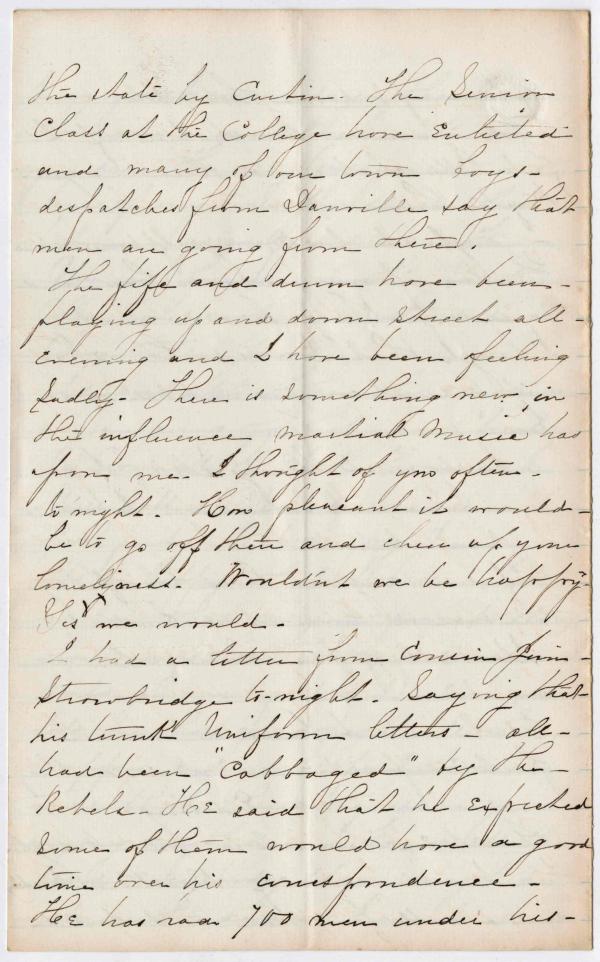 the state by Curtin. The Senior
Class at the College have Enlisted
and many of our town boys-
despatches from Danville say that
men are going from there.
The fife and drum have been-
playing up and down street all-
evening and I have been feeling
Sadly- There is something new in
the influence martial Music has
upon me. I thought of you often-
to night. How pleasant it would-
be to go off there and cheer up your
loneliness. Wouldn't we be happy-
Yes we would-
I had a letter from Cousin Jim-
Strowbridge to-night. Saying that-
his trunk Uniform letters - all-
had been "Cabbaged" by the-
Rebels- He said that he Expected
some of them would have a good
time over his correspondence-
He has had 700 men under his-